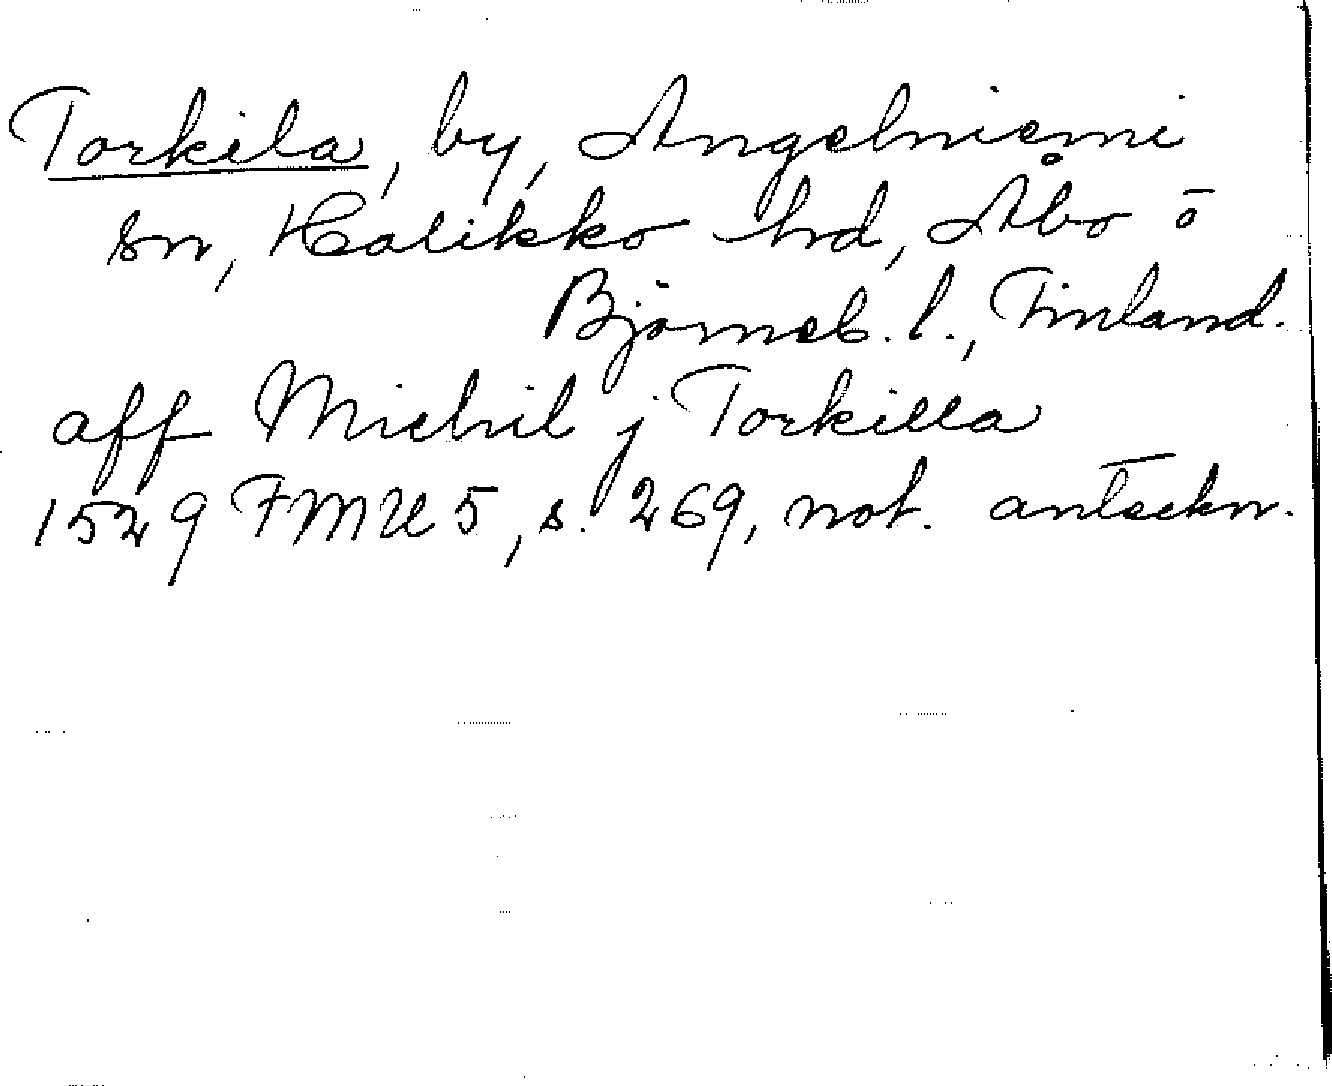 Torkila, by, Angelniemi
sn, Halikko hd, Åbo o
Björneb. l., Finland.
aff Michil j Torkilla
1529 FMU 5, s. 269, not. anteckn.